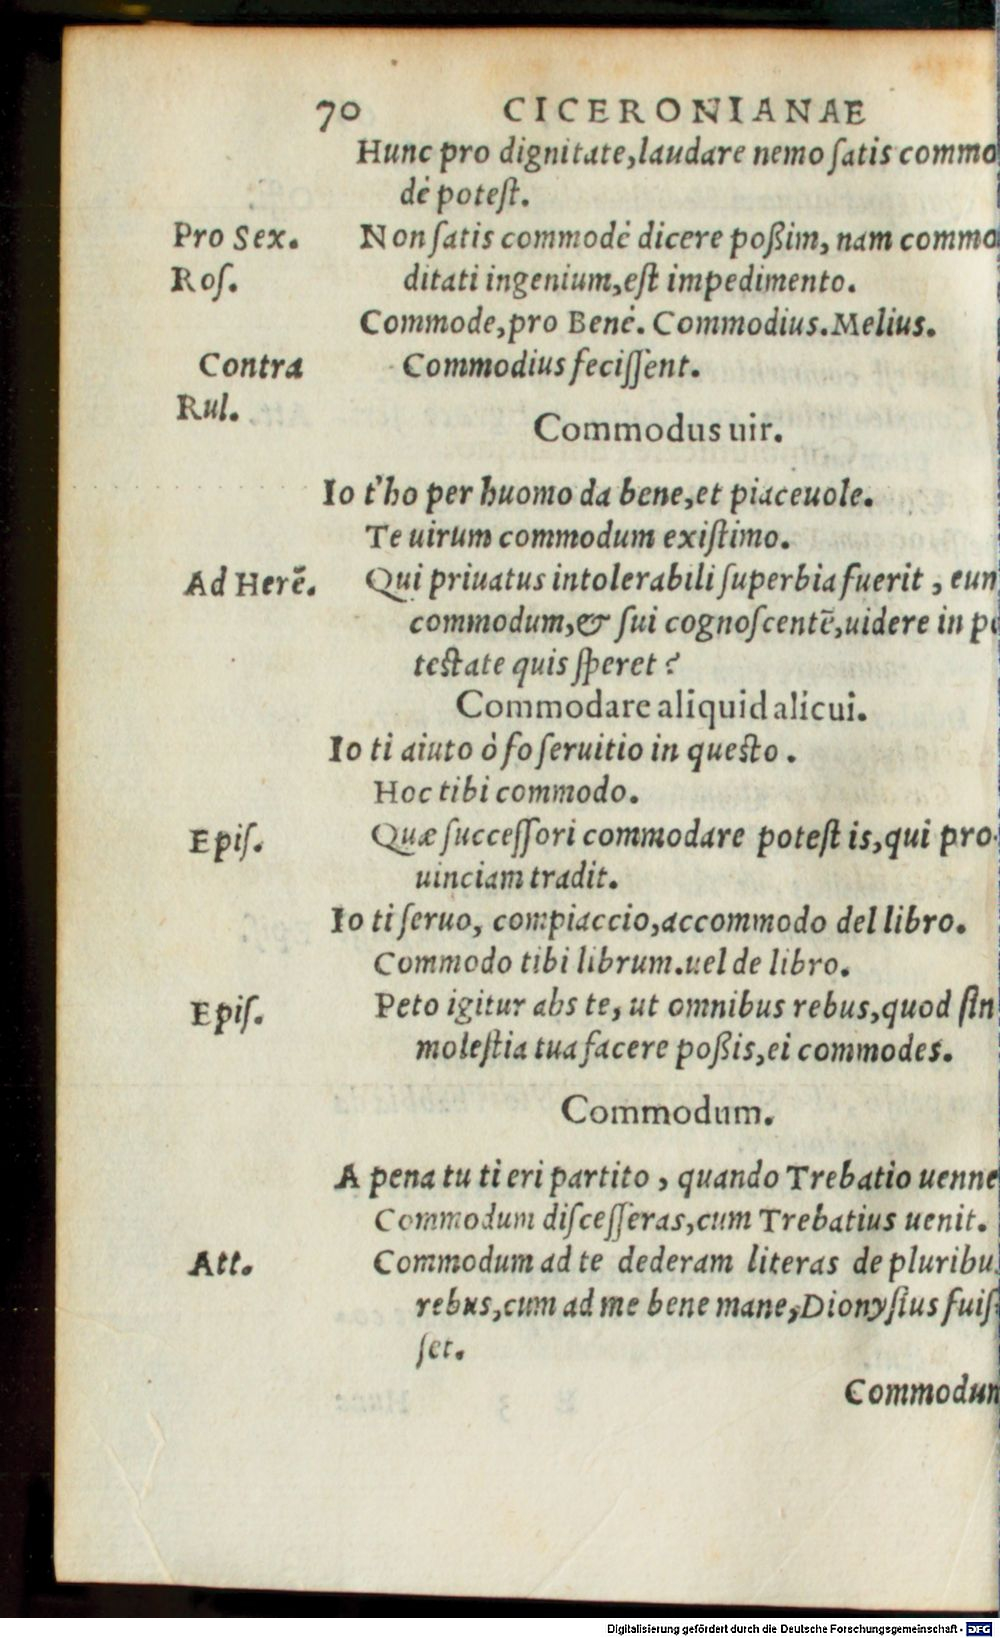 70 CICERONIANAE
Hunc pro dignitate, laudare nemo ſatis commo
dè poteſt.
Pro Sex. Non ſatis commodè dicere poßim, nam commo
Roſ. ditati ingenium, eſt impedimento.
Commode, pro Benè. Commodius. Melius.
Contra Commodius feciſſent.
Rul.
Commodus uir.
Io t'ho per huomo da bene, et piaceuole.
Te uirum commodum exiſtimo.
Ad Herē. Qui priuatus intolerabili ſuperbia fuerit, eun
commodum, & ſui cognoſcentē, uidere in po
teſtate quis ſperet?
Commodare aliquid alicui.
Io ti aiuto ò fo ſeruitio in queſto.
Hoc tibi commodo.
Epiſ. Quæ ſucceſſori commodare poteſt is, qui pro-
uinciam tradit.
Io ti ſeruo, compiaccio, accommodo del libro.
Commodo tibi librum. uel de libro.
Epiſ. Peto igitur abs te, ut omnibus rebus, quod ſin
moleſtia tua facere poßis, ei commodes.
Commodum.
A pena tu ti eri partito, quando Trebatio uenne
Commodum diſceſſeras, cum Trebatius uenit.
Att. Commodum ad te dederam literas de pluribus
rebus, cum ad me bene mane, Dionyſius fuiſ-
ſet.
Commodum
Digitalisierung gefördert durch die Deutsche Forschungsgemeinschaft - DFG